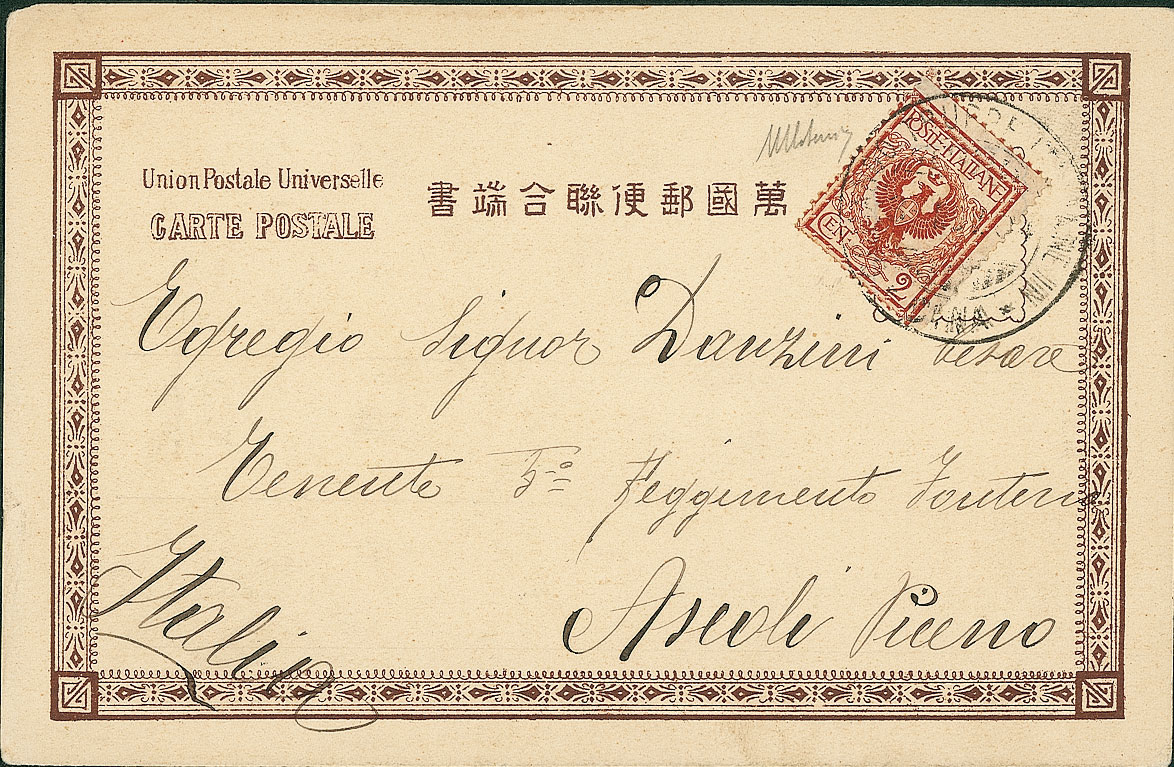 Union Postale Universelle
CARTE POSTALE
萬國郵便聯合端書
POSTE·ITALIANE
CEN. 2
Egregio Signor Danzini Cesare
Tenente 5º Reggimento Fanteria
Ascoli Piceno
Italia